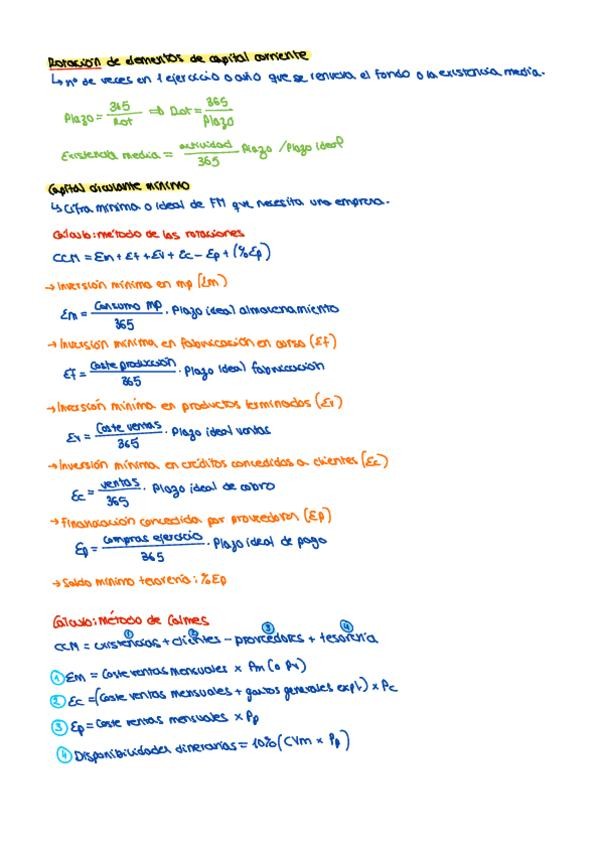 Rotación de elementos de capital corriente
↳ nº de veces en 1 ejercicio o año que se renueva el fondo o la existencia media.
Plazo = 365/Rot ⇒ Rot = 365/Plazo
Existencia media = actividad/365 Plazo / Plazo ideal
Capital circulante mínimo
↳ Cifra mínima o ideal de FM que necesita una empresa.
Cálculo: método de las rotaciones
CCM = Em + Ef + Ev + Ec - Ep + (% Ep)
→ Inversión mínima en mp (Em)
Em = Consumo mp/365 · Plazo ideal almacenamiento
→ Inversión mínima en fabricación en curso (Ef)
Ef = Coste producción/365 · Plazo ideal fabricación
→ Inversión mínima en productos terminados (Ev)
Ev = Coste ventas/365 · Plazo ideal ventas
→ Inversión mínima en créditos concedidos a clientes (Ec)
Ec = ventas/365 · Plazo ideal de cobro
→ Financiación concedida por proveedores (Ep)
Ep = compras ejercicio/365 · Plazo ideal de pago
→ Saldo mínimo tesorería: % Ep
Cálculo: Método de Calmes
① ② ③ ④
CCM = existencias + clientes - proveedores + tesorería
① EM = Coste ventas mensuales x Pm (o Pv)
② Ec = (Coste ventas mensuales + gastos generales expl.) x Pc
③ Ep = Coste ventas mensuales x Pp
④ Disponibilidades dinerarias = 10% (CVm x Pp)